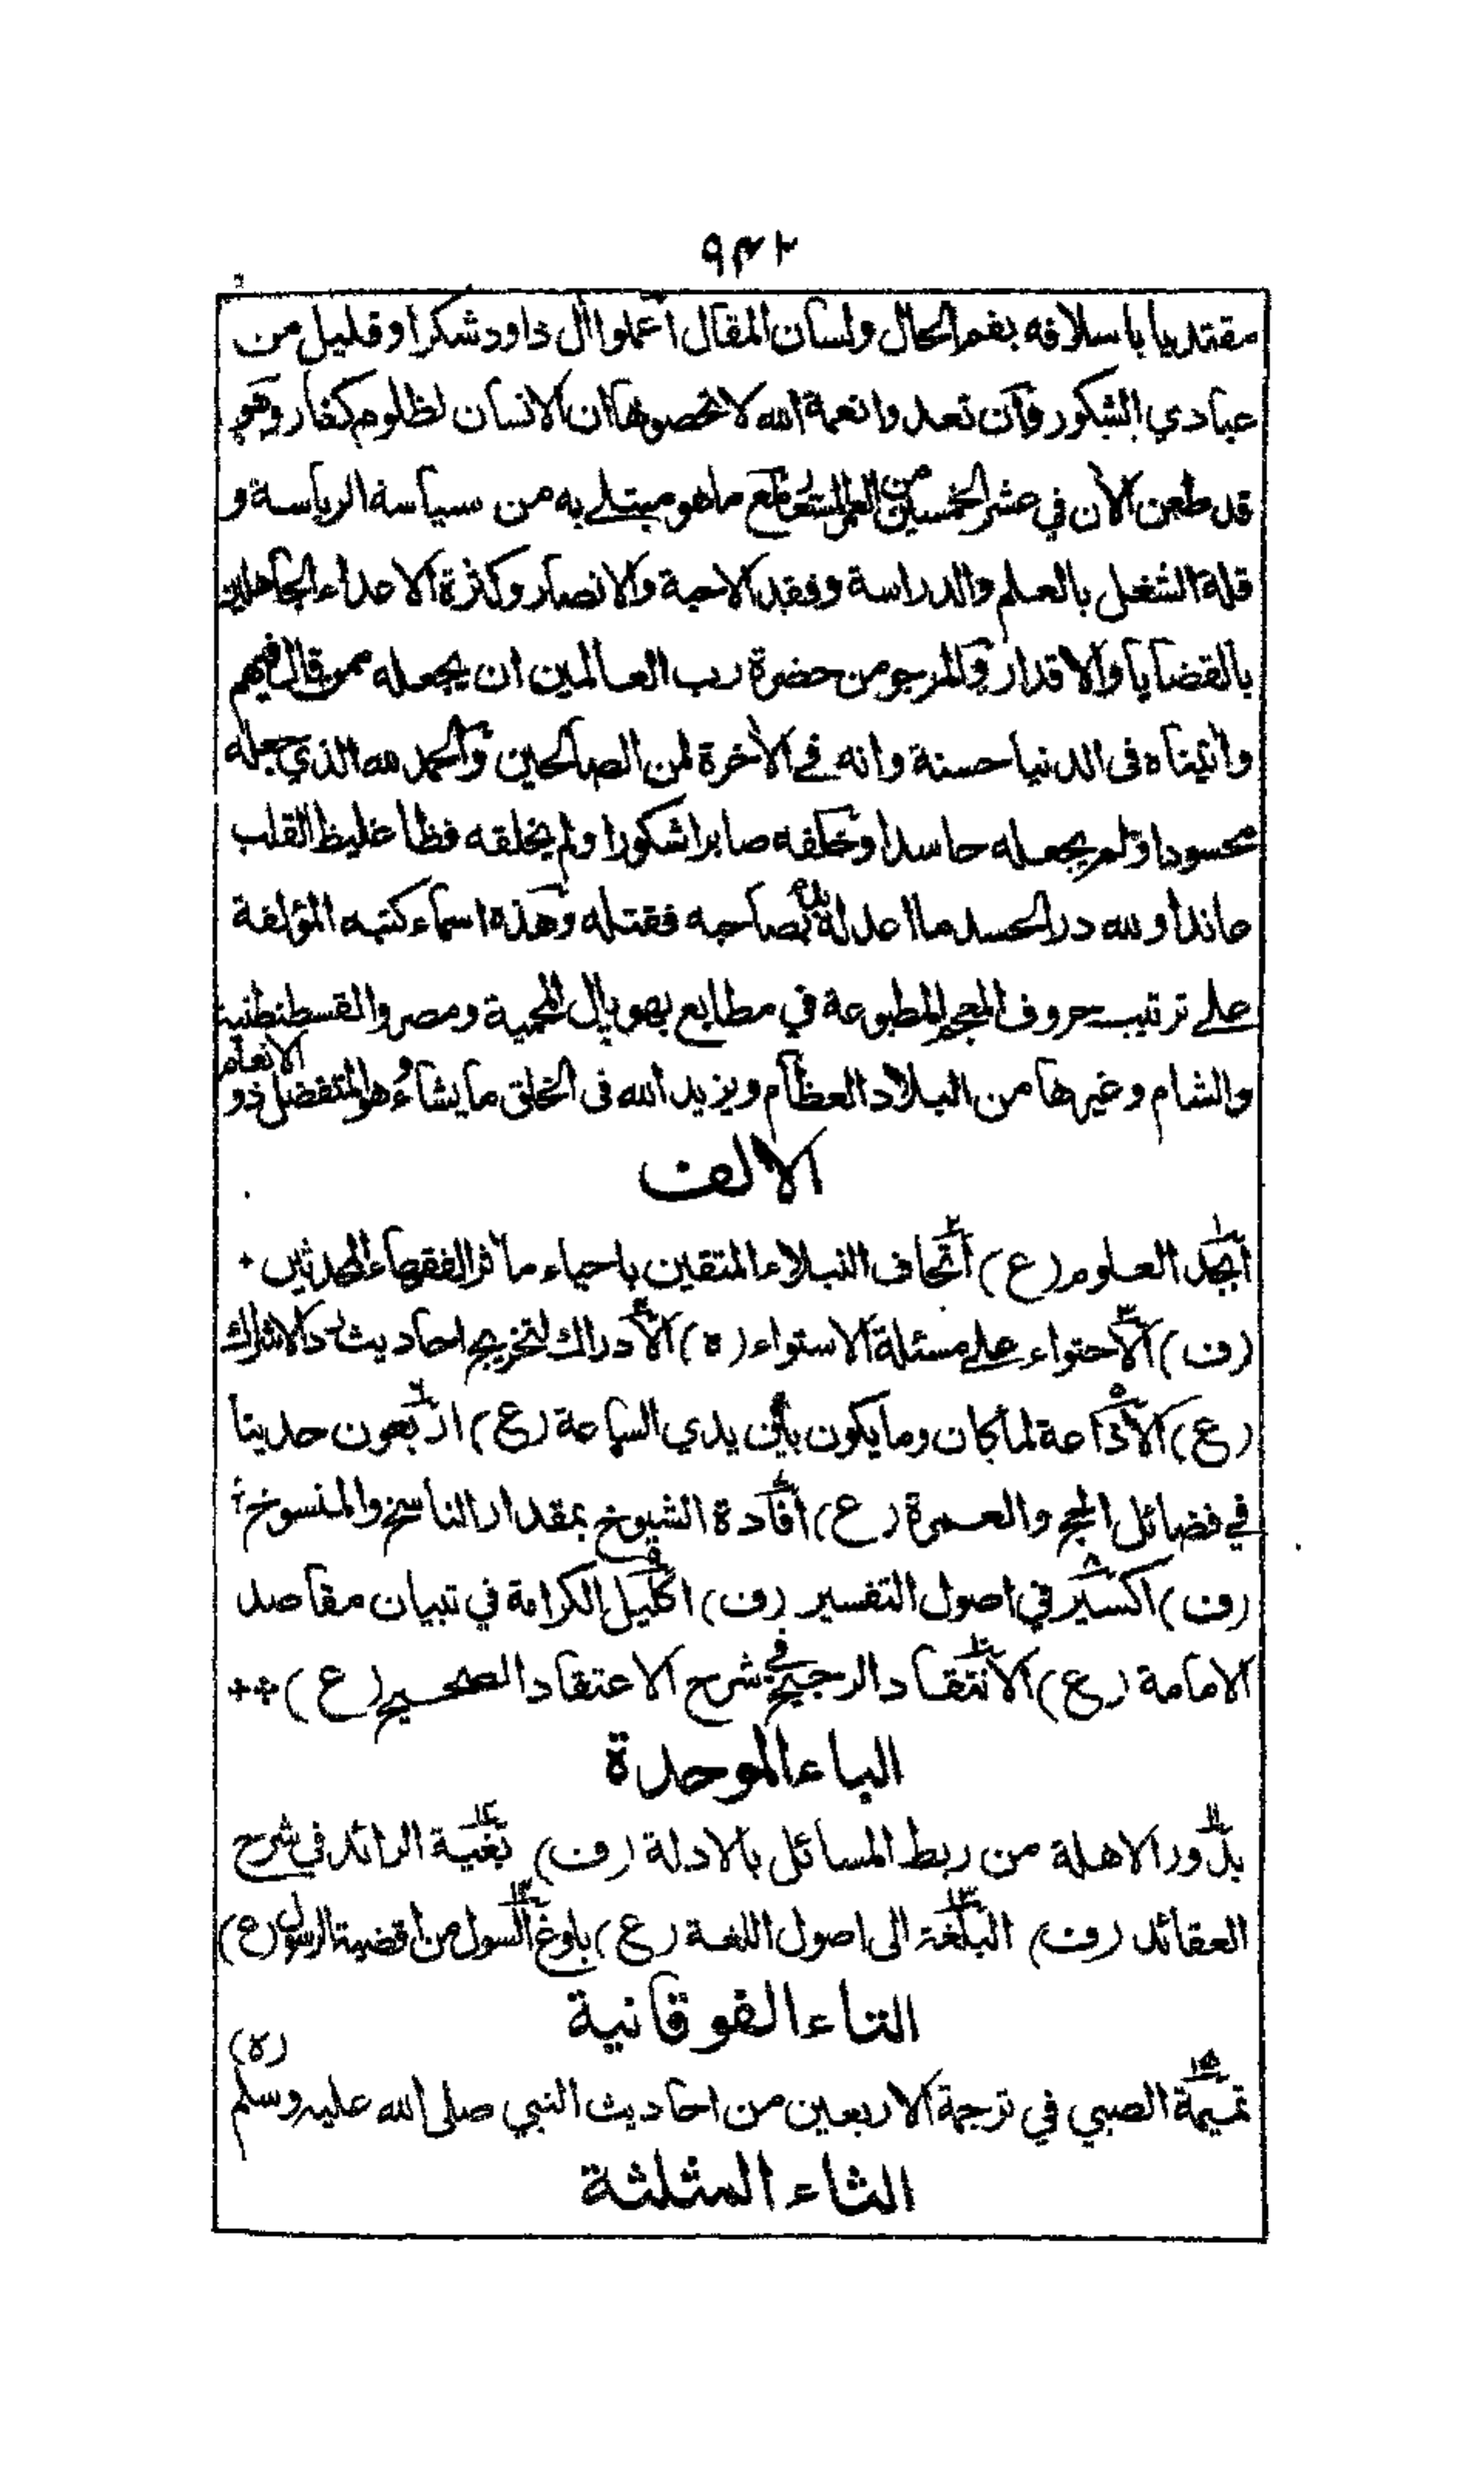 ٩٤٢
مقتديا باسلافه بفم الحال ولسان المقال اعملوا آل داود شكرا وقليل من
عبادي الشكور وان تعدوا نعمة الله لا تحصوها ان الانسان لظلوم كفار وهو
قد طعن الآن في عشر الخمسين من العمر المستعار مع ما هو مبتلے به من سياسة الرياسة و
قلة الشغل بالعلم والدراسة وفقد الاحبة والانصار وكثرة الاعداء الجاهلين
بالقضايا والاقدار والمرجو من حضرة رب العالمين ان يجعله ممن قال فيهم
واتيناه فى الدنيا حسنة وانه فے الآخرة لمن الصالحين والحمد لله الذي جعله
محسودا ولم يجعله حاسدا وخلقه صابرا شكورا ولم يخلقه فظا غليظ القلب
حاندا ولله در الحسد ما اعدله بدء بصاحبه فقتله وهذه اسماء كتبه المؤلفة
علے ترتيب حروف المعجم المطبوعة في مطابع بهوپال المحمية ومصر والقسطنطنية
والشام وغيرها من البلاد العظام ويزيد الله فى الخلق ما يشاء وهو المتفضل ذو الانعام
الالف
ابجد العلوم (ع) اتحاف النبلاء المتقين باحياء مآثر الفقهاء المحدثين
(ف) الاحتواء علے مسئلة الاستواء (ه) الادراك لتخريج احاديث رد الاشراك
(ع) الاذاعة لما كان وما يكون بين يدي الساعة (ع) اربعون حديثا
في فضائل الحج والعمرة (ع) افادة الشيوخ بمقدار الناسخ والمنسوخ
(ف) اكسير في اصول التفسير (ف) اكليل الكرامة في تبيان مقاصد
الامامة (ع) الانتقاد الرجيح في شرح الاعتقاد الصحيح (ع)
الباء الموحدة
بدور الاهلة من ربط المسائل بالادلة (ف) بغية الرائد في شرح
العقائد (ف) البلغة الى اصول اللغة (ع) بلوغ السول من اقضية الرسول (ع)
التاء الفوقانية
تميمة الصبي في ترجمة الاربعين من احاديث النبي صلى الله عليه وسلم (ه)
الثاء المثلثة